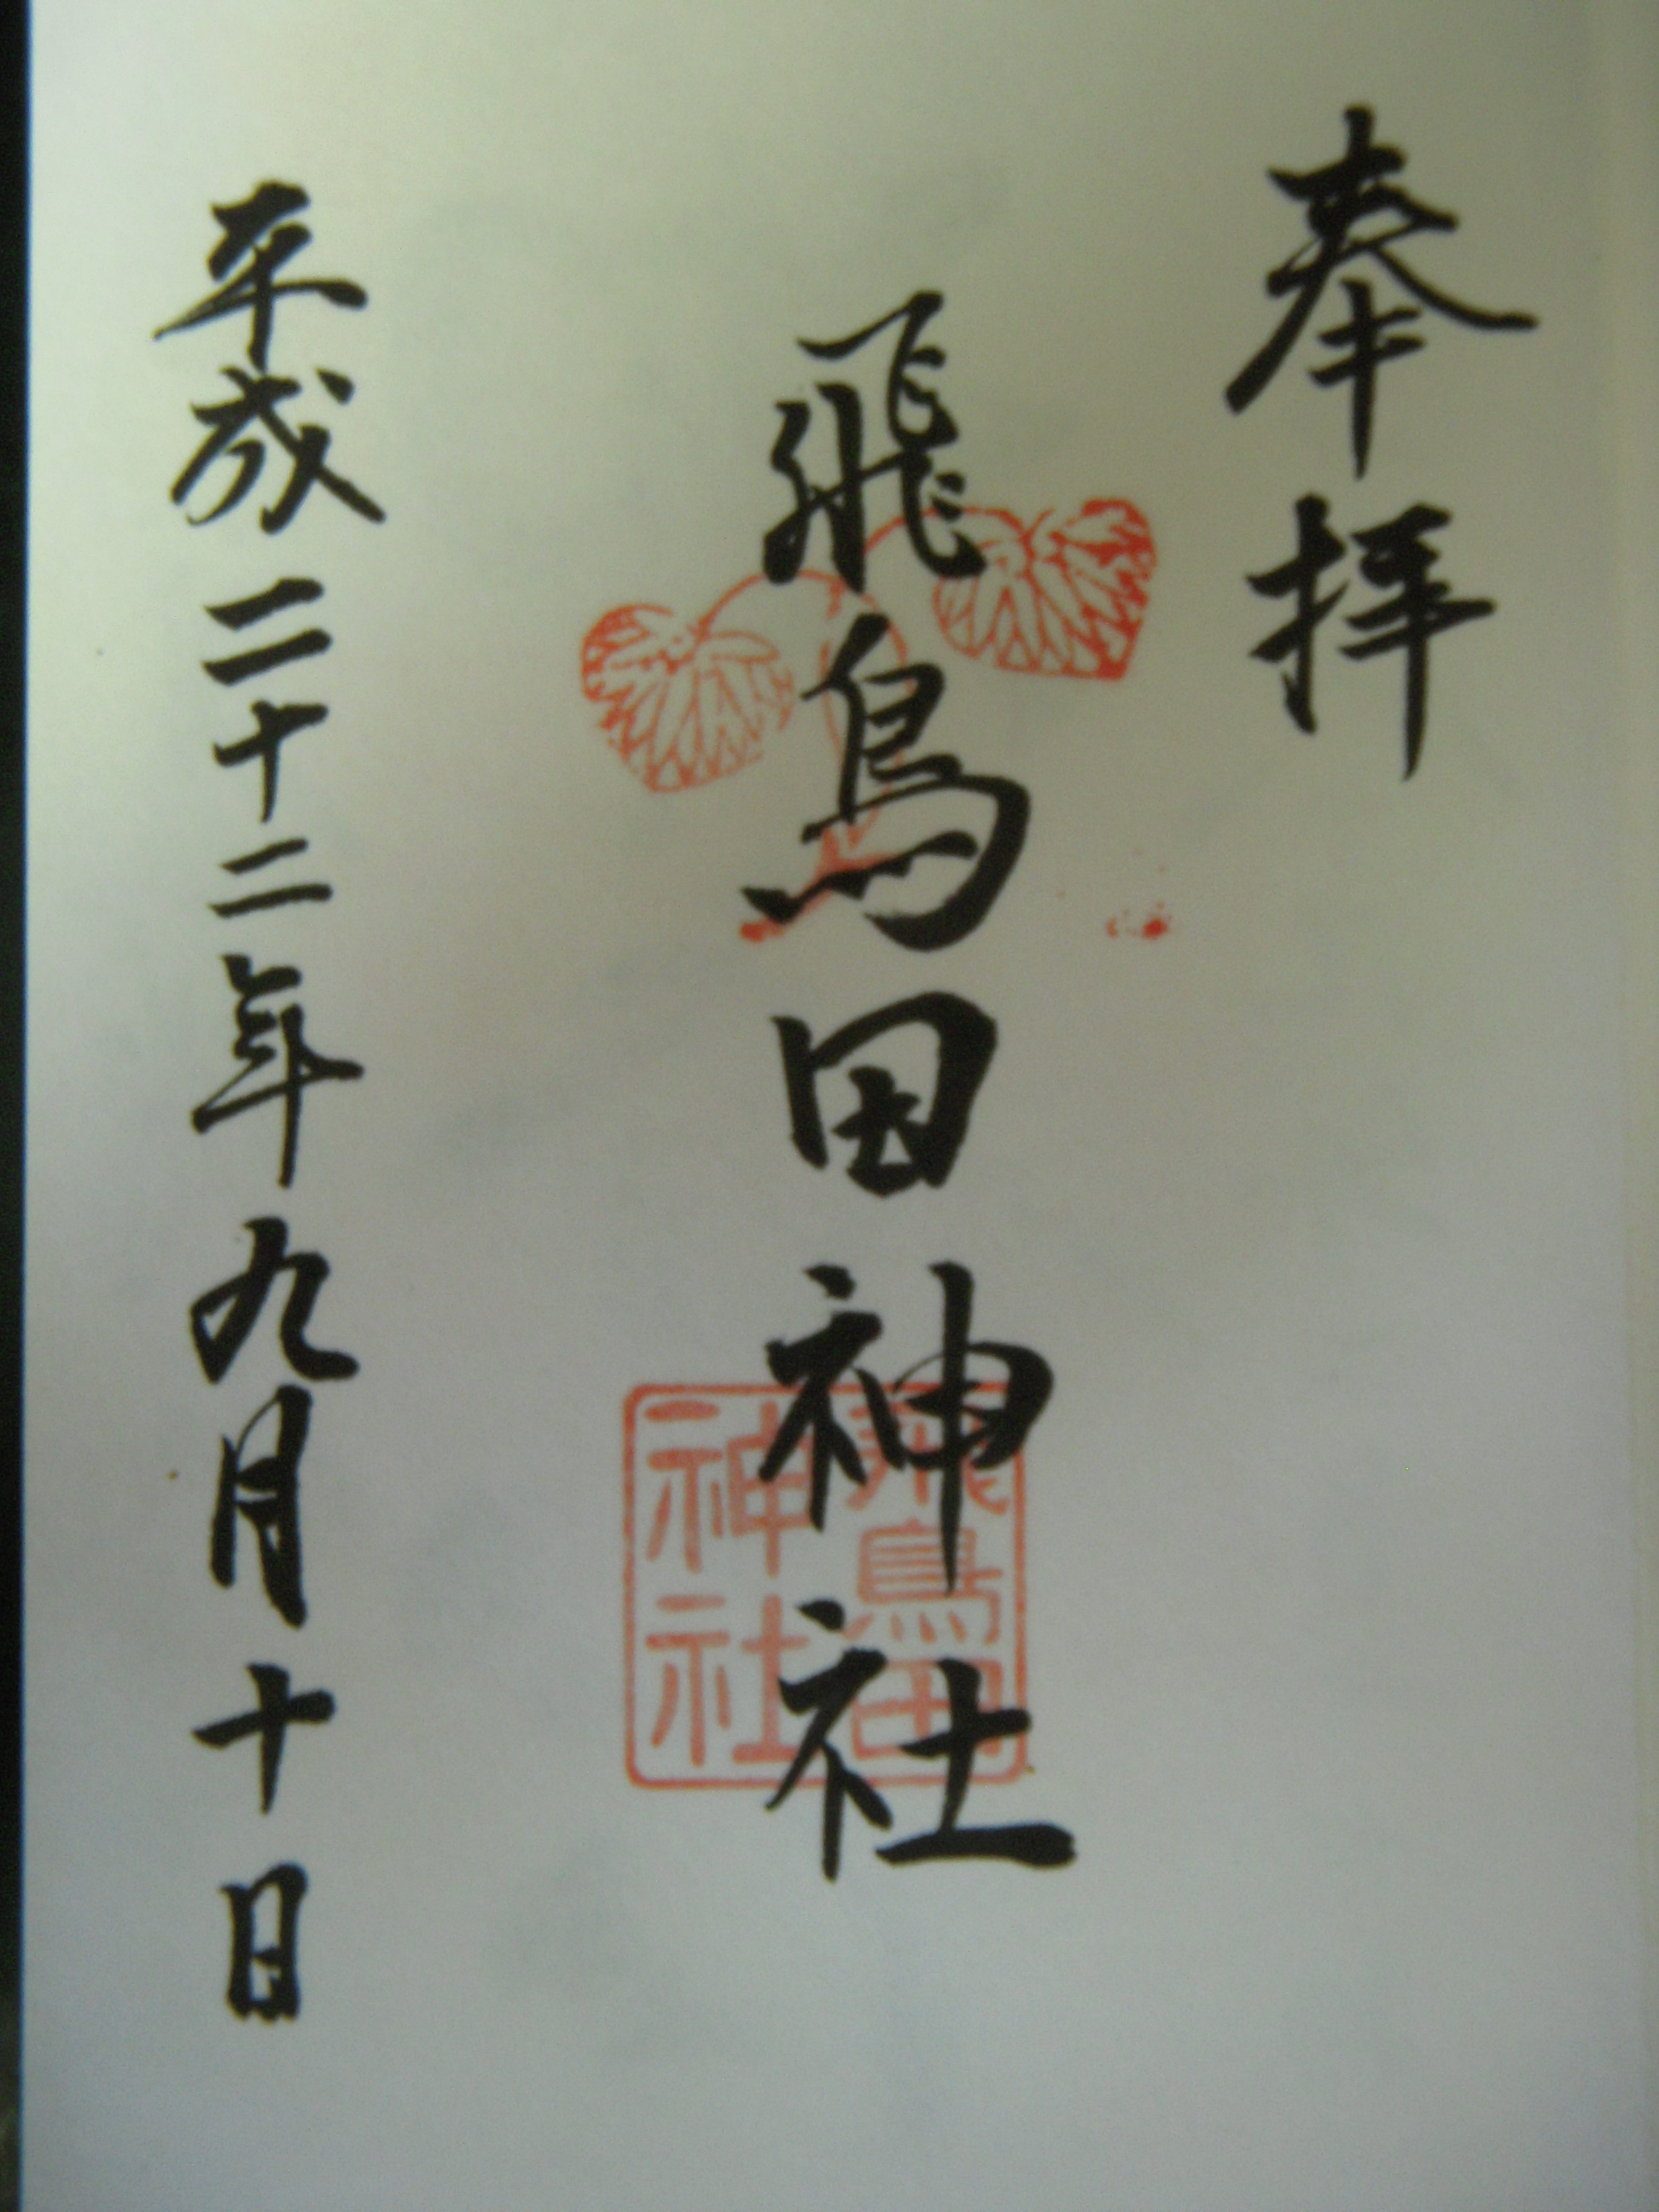 奉拝
飛鳥田神社
飛鳥田
神社
平成二十二年九月十日